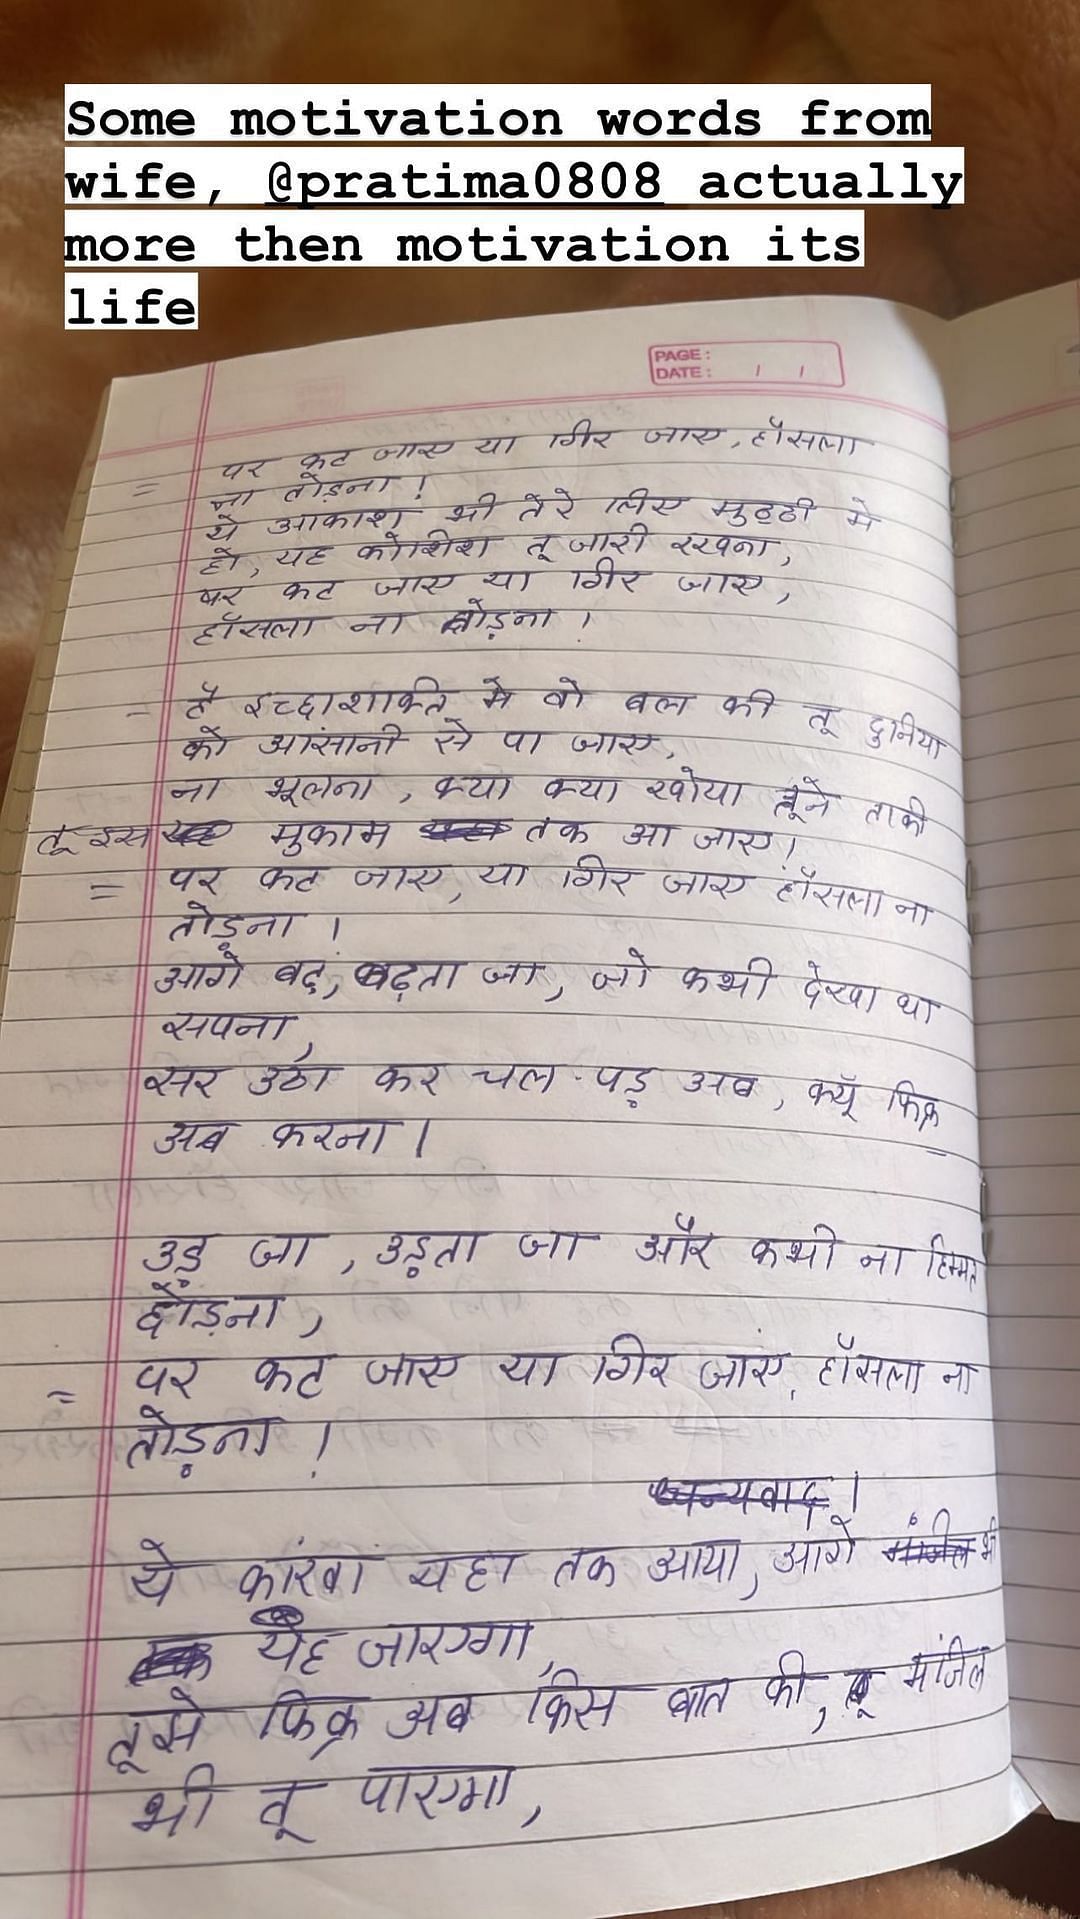 Some motivation words from
wife, @pratima0808 actually
more then motivation its
life
PAGE:
DATE: / /
= पर कट जाए या गिर जाए, हौंसला
ना तोड़ना !
ये आकाश भी तेरे लिए मुठ्ठी मे
हो, यह कोशिश तू जारी रखना,
पर कट जाए या गिर जाए,
हौंसला ना तोड़ना ।
- है इच्छाशक्ति मे वो बल की तू दुनिया
को आंसानी से पा जाए,
ना भूलना, क्या क्या खोया तूने ताकी
तू इस मुकाम तक आ जाए !
= पर कट जाए, या गिर जाए हौंसला ना
तोड़ना ।
आगे बढ़, बढ़ता जा, जो कभी देखा था
सपना,
सर उठा कर चल पड़ अब, क्यूँ फिक्र
अब करना ।
उड़ जा, उड़ता जा और कभी ना हिम्मत
छोड़ना,
= पर कट जाए या गिर जाए, हौंसला ना
तोड़ना !
धन्यवाद ।
ये कांरवां यहा तक आया, आगे मंजिल भी
यह जाएगा,
तूझे फिक्र अब किस बात की, तू मंजिल
भी तू पाएगा,